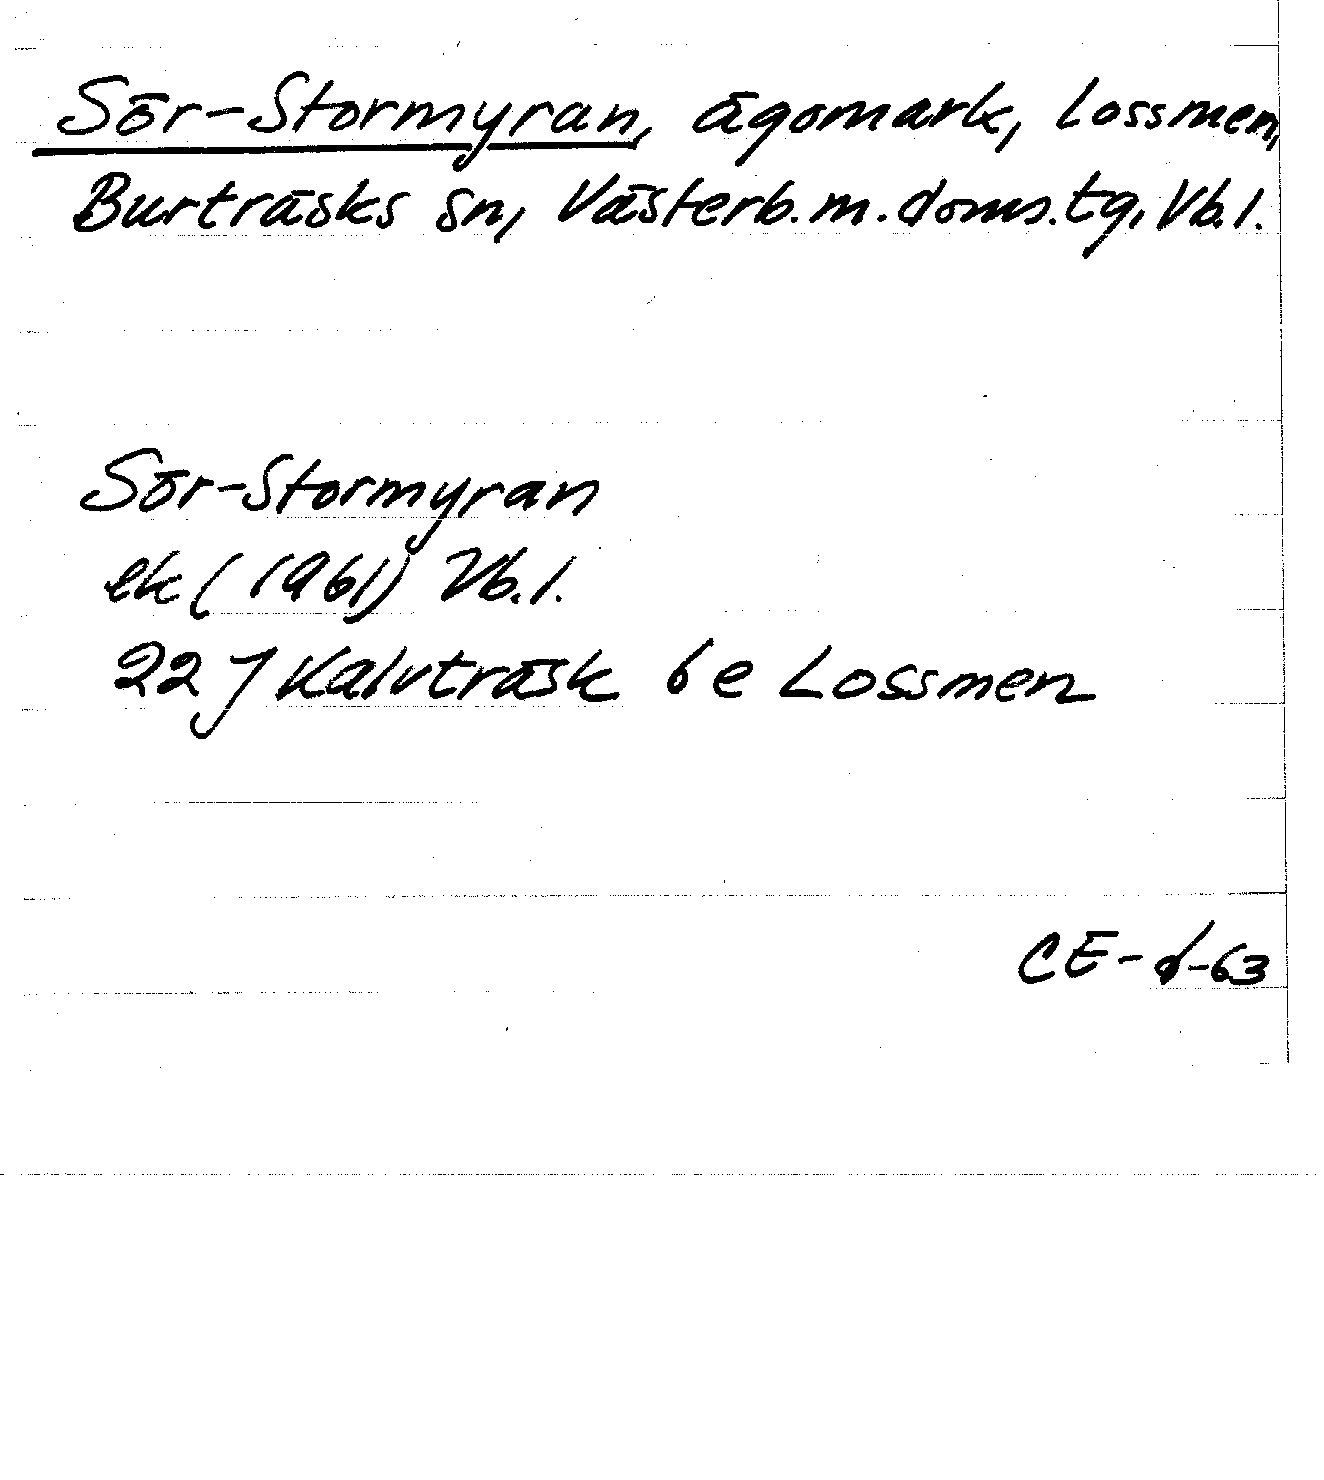 Sör-Stormyran, ägomark, Lossmen,
Burträsks sn, Västerb.m.doms.tg, Vb.l.
Sör-Stormyran
ek (1961) Vb.l.
22 J Kalvträsk 6e Lossmen
CE-d-63